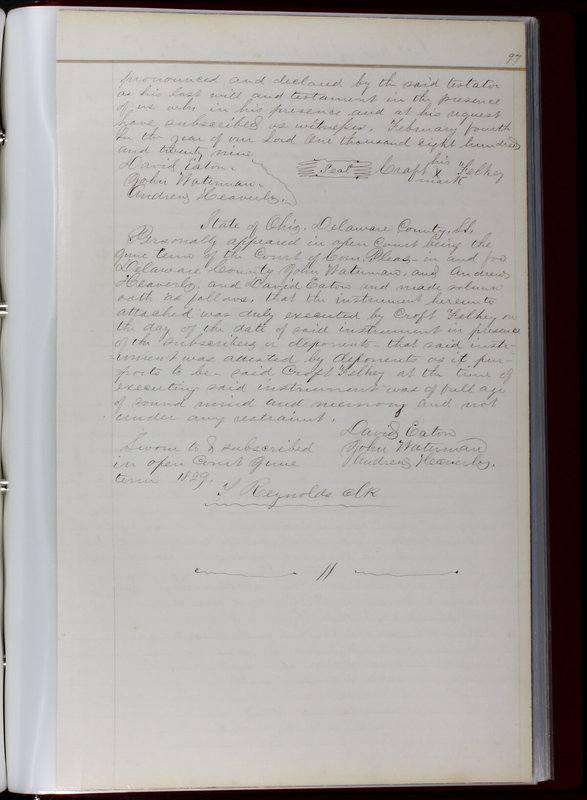 97
pronounced and declared by the said testator
as his last will and testament in the presence
of us who in his presence and at his request
have subscribed as witnesses. February fourth
in the year of our Lord One thousand eight hundred
and twenty nine
David Eaton.
John Waterman.
Andrew Heaverlo.
Seal Croft his X mark Felkey
State of Ohio. Delaware County. ss.
Personally appeared in open Court being the
June term of the Court of Com. Pleas in and for
Delaware County John Waterman, and Andrew
Heaverlo. and David Eaton and made solemn
oath as follows, that the instrument hereunto
attached was duly executed by Croft Felkey on
the day of the date of said instrument in presence
of the subscribers or deponents that said instr-
-ument was attested by deponents as it pur-
ports to be - said Croft Felkey at the time of
executing said instrument was of full age
of sound mind and memory and not
under any restraint.
David Eaton
John Waterman
Andrew Heaverlo.
Sworn to & subscribed
in open Court June
term 1829.
T Reynolds Clk